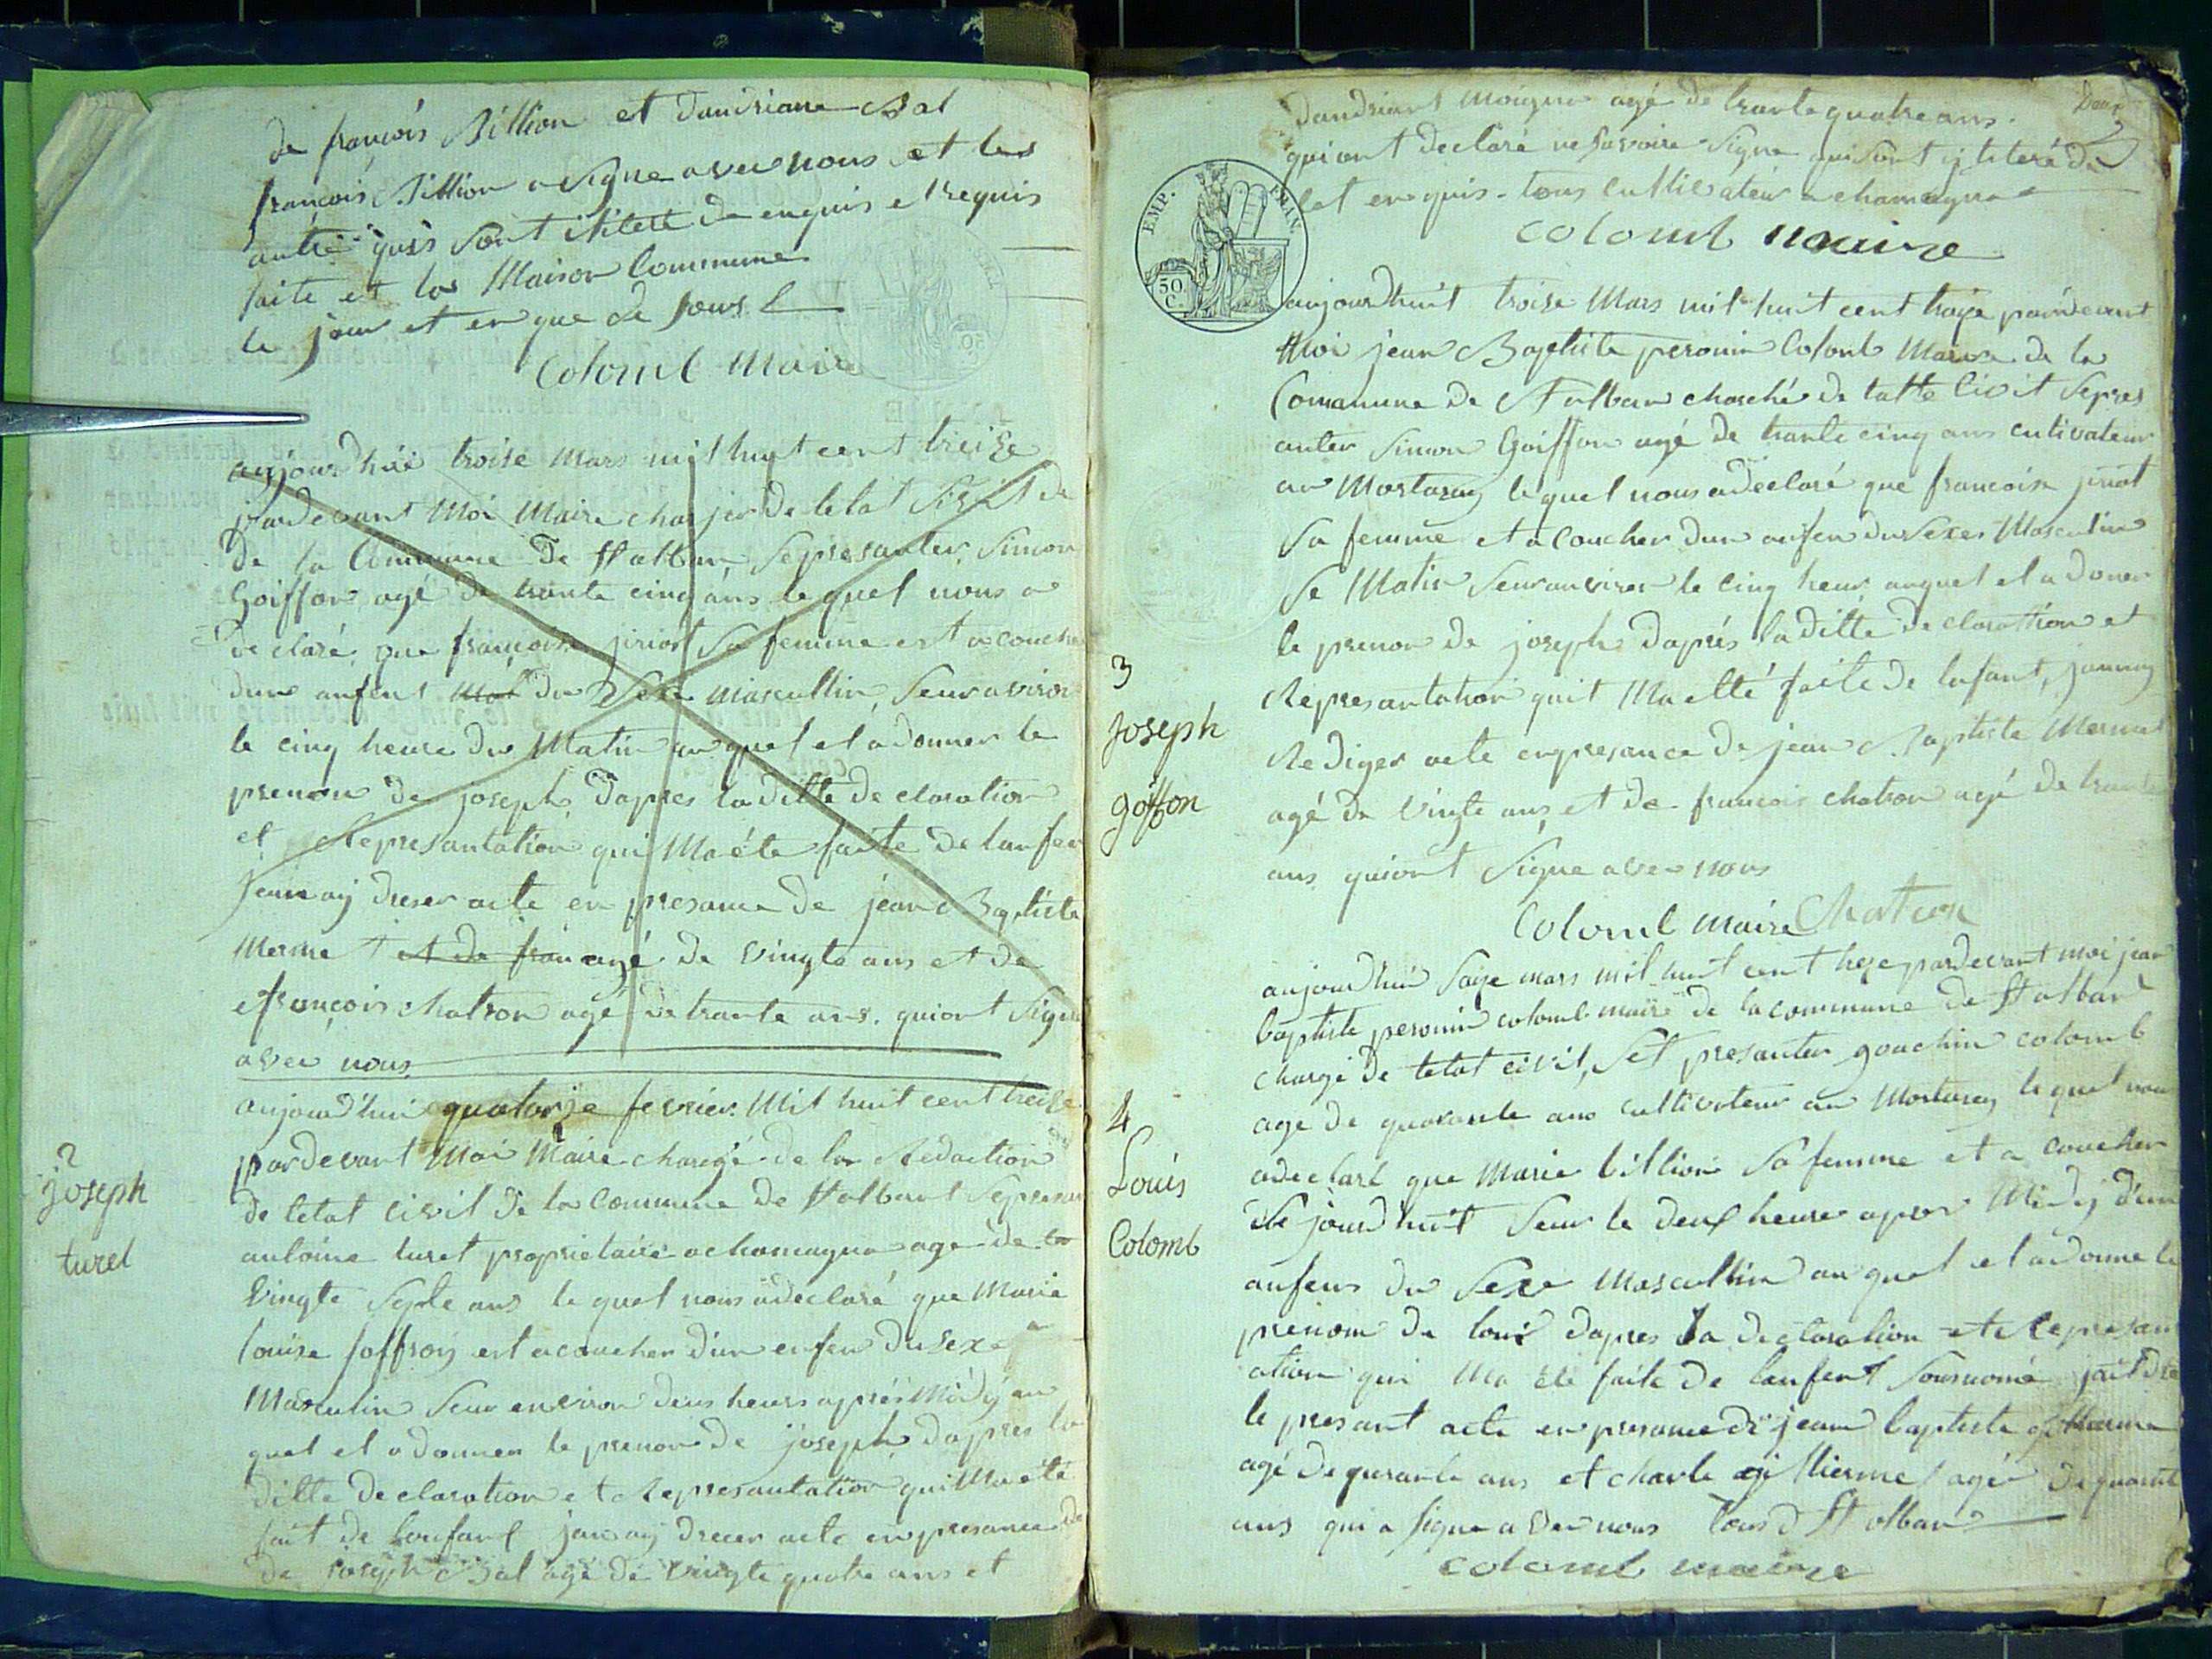 de françois Billion et dandriane Bal
françois Billion a Signe avec nous et les
autre quis sont itileté de enquis e trequis
faite et la Maison Commune
le jour et en que de sous
Colomb Maire
aujourdhui troise Mars mil huit cent treize
pardevant Moi Maire charjer de letat Sivit de
de la Commune de Stalban Sepresanter Simon
Goiffon agé de trante cinq ans lequel nous a
declaré que françoise jiriot Sa femme est acouche
dun anfent du Sexe Mascullin, Seur aviron
le cinq heure du Matin au quel el a donner le
prenom de joseph dapres la ditte declaration
et Representation qui Ma éte faite de lanfen
jean ay dreser acte en presance de jean Baptiste
Mermet et de fran agé de vingte ans et de
françois chatron agé de trante ans. quiont Signe
avec nous
2
joseph
turel
aujourd'hui quatorze fevrier Mil huit cent treize
pardevant Moi Maire chargé de la Redaction
de letat civil de la Commune de Stalbant Sepresan
antoine turet proprietaire a chamagna age de
Vingte Septe ans le quel nous a declaré que Marie
louise joffroy est acoucher d'un enfen du sexe
Masculin Seur environ deus heurs aprés Midÿ au
quel el a donner le prenon de joseph dapres la
ditte declaration et Representation qui Ma été
fait de lanfant janay drecer acte en presance de
de joseph Bal agé de vingte quatre ans et
Deux
dandriant Moigne agé de trante quatre ans.
quiont declaré ne Savoire Signe quisont ititeré de
let enquis. tous cultivateur a chamagna
Colomb maire
EMP. FRAN.
50
C.
3
Joseph
goiffon
aujourdhuit troise Mars mil huit cent traize pardevant
Moi jean Baptiste peronin Colomb Maire de la
Commune de Stalban charché de tatte Civit Sepres
anter Simon Goiffon agé de trante cinq ans cultivateur
au Mortaray le quel nous a declaré que francoise jiriot
Sa femme et acoucher dun anfen du Sexes Masculin
Se Matin Seur anviron le cinq heur auquel el a doner
le prenon de joseph daprés la ditte declarattion et
Representation quit Ma etté faite de lafant, jannay
Rediger acte en presance de jean Baptiste Mermet
agé de Vingte ans et de francois chatron agé de trante
ans quiont Signe avec nous
Colomb maire Chatron
4
Louis
Colomb
aujourdhui Saize mars mil huit cent treze pardevant moi jean
baptiste peronin colomb maire de la commune de Stalban
chargé de letat civil, Set presanter gouachin colomb
age de quarante ans cultivateur au Mortaray le quel nous
adeclaré que Marie billion Sa femme et a coucher
de jourdhuit Seur le deux heure aprer Midÿ d'un
anfens du Sexe Mascullin au quel el a donne le
prenom de loui dapres La declaration et Represan
ation qui Ma été faite de lanfent Sousnomé jait dre
le presant acte en presance de jean baptiste
agé de qurante ans et charle agé de quarante
ans qui a signe a vec nous tous d Stalban
colomb maire